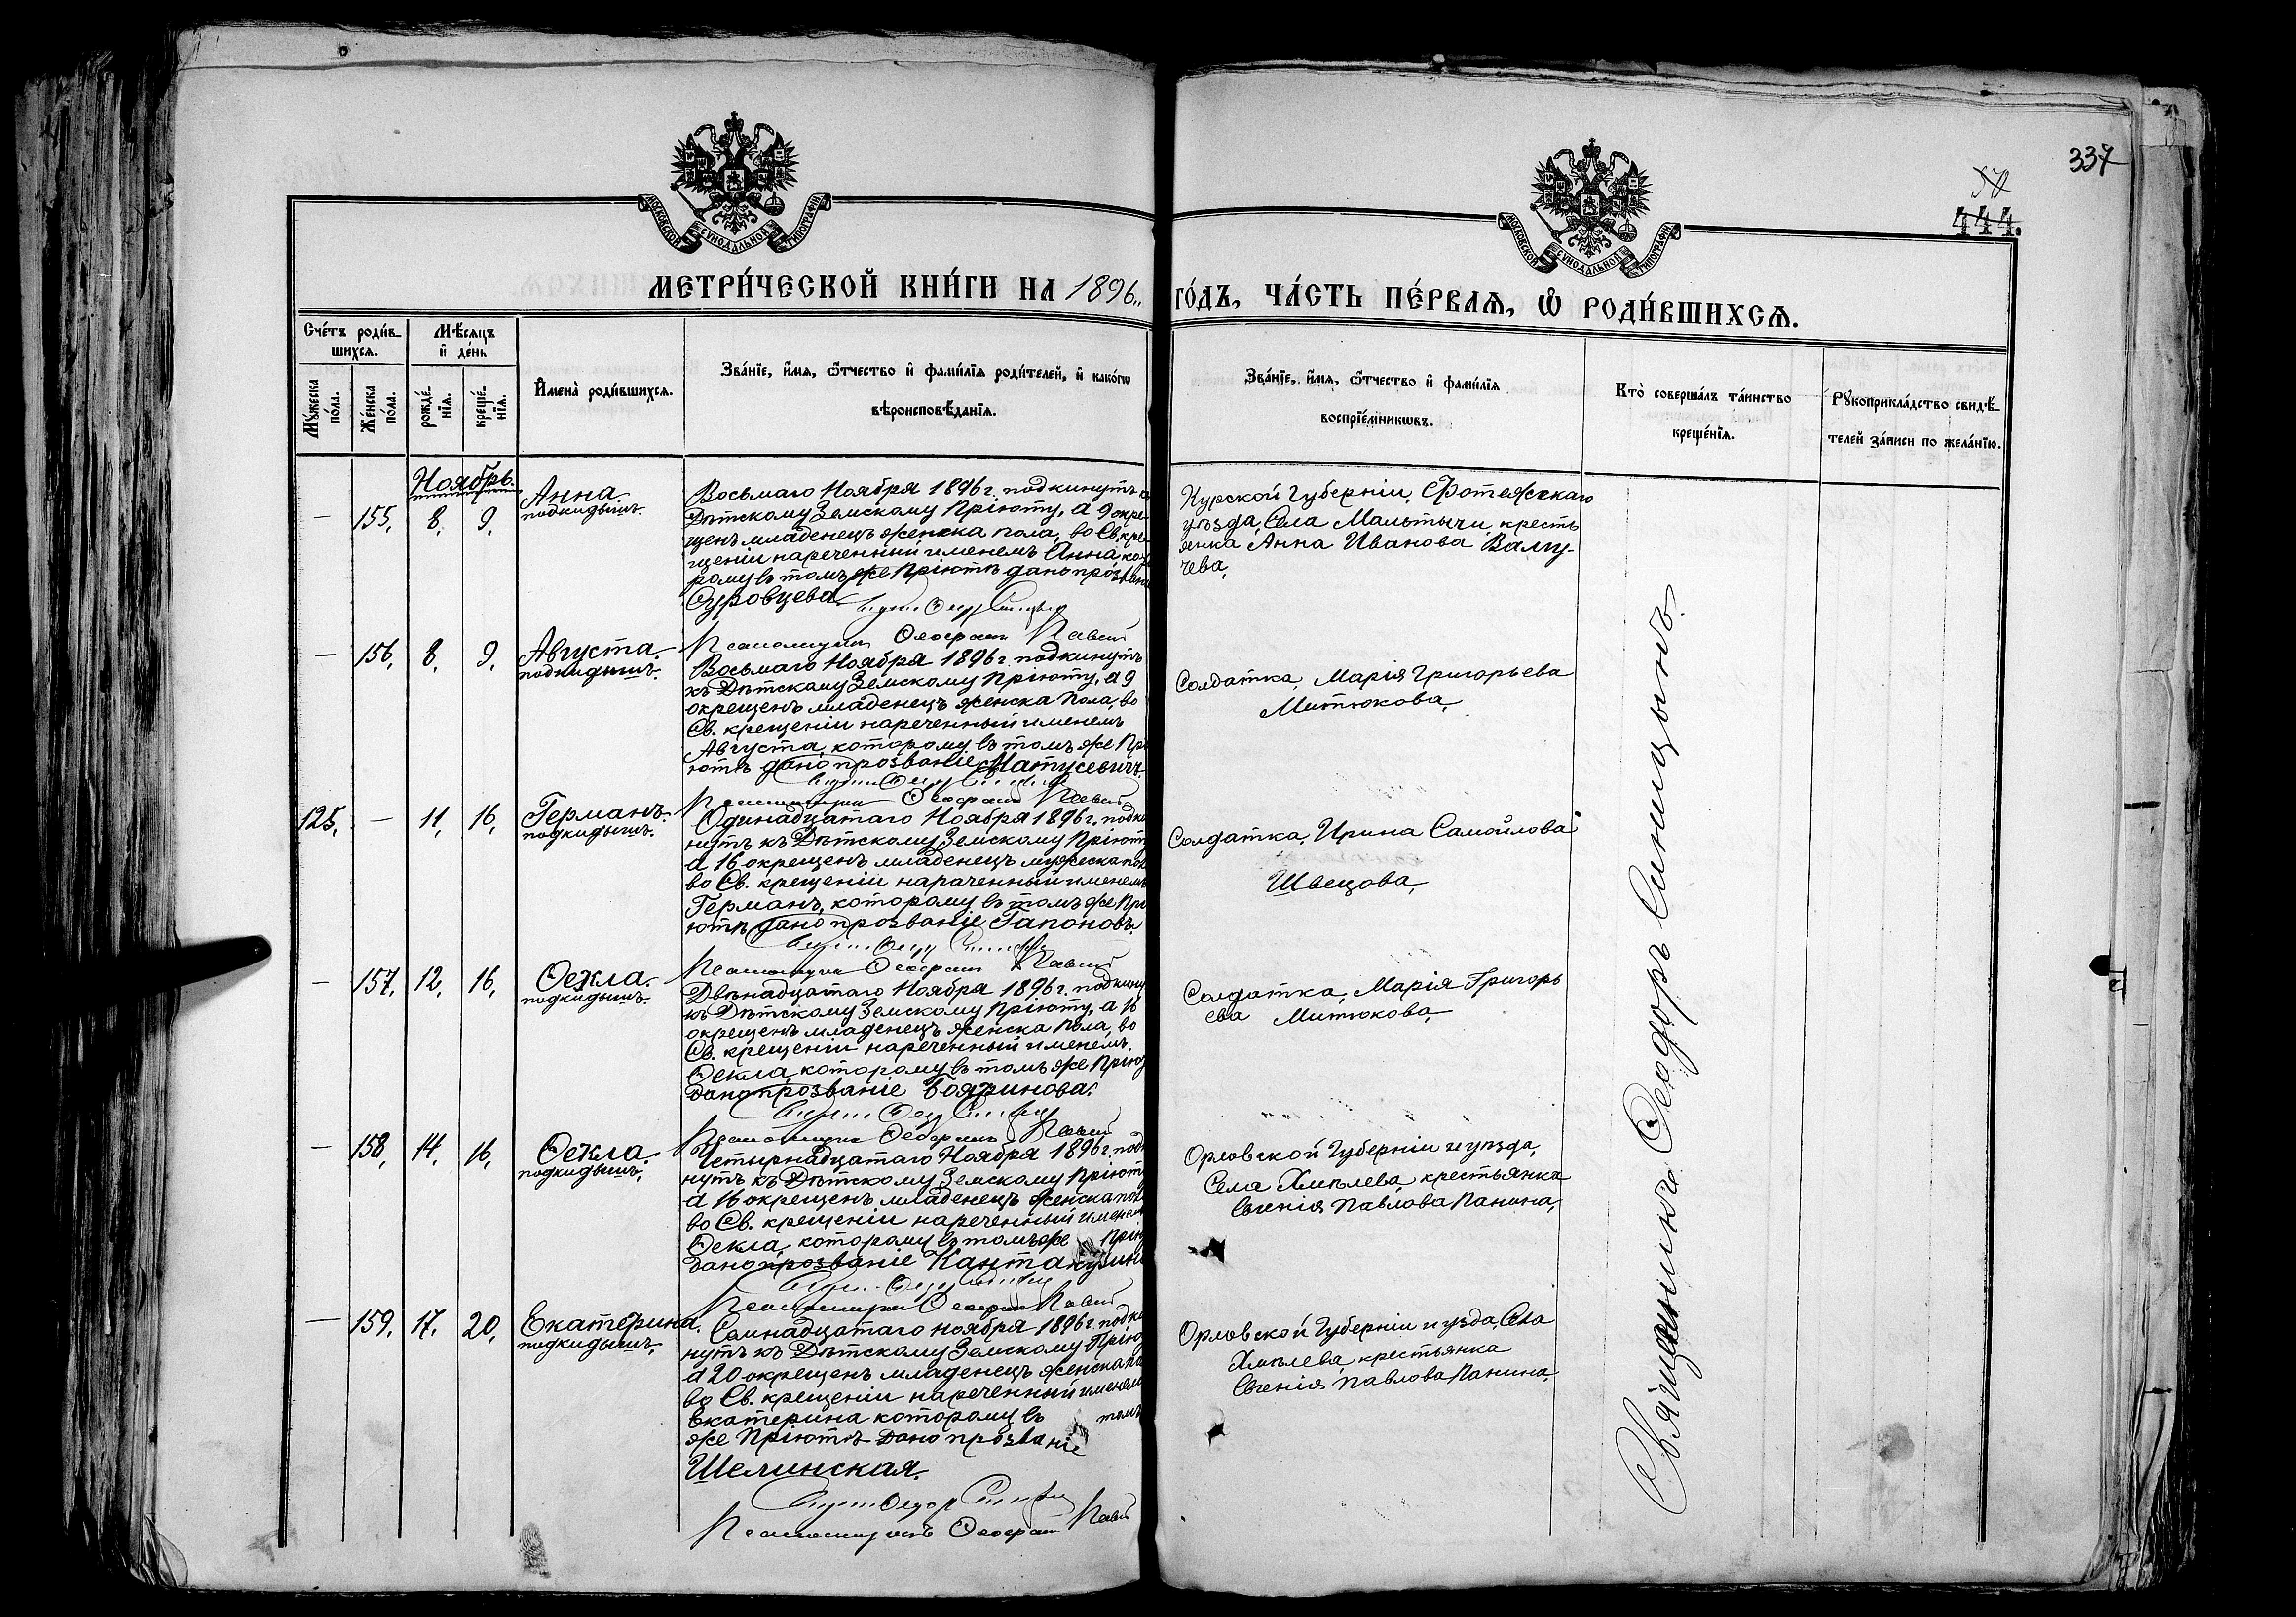 337
444.
МОСКОВСКОЙ СѴНОДАЛЬНОЙ ТИПОГРАФІИ
МОСКОВСКОЙ СѴНОДАЛЬНОЙ ТИПОГРАФІИ
МЕТРИ́ЧЕСКОЙ КНИ́ГИ НА 1896 ГО́ДЪ, ЧА́СТЬ ПЕ́РВАѦ, Ѡ҆ РОДИ́ВШИХСѦ.
Сче́тъ роди́в-
шихсѧ.
Мꙋ́жеска по́ла.
Же́нска по́ла.
Мѣ́сѧцъ
и҆ де́нь
рожде́-
нїѧ.
креще́-
нїѧ.
И҆мена̀ роди́вшихсѧ.
Зва́нїе, и҆́мѧ, ѻ҆́тчество и҆ фами́лїѧ роди́телей, и҆ како́гѡ
вѣроисповѣ́данїѧ.
Зва́нїе, и҆́мѧ, ѻ҆́тчество и҆ фами́лїѧ
воспрїе́мникѡвъ.
Кто̀ соверша́лъ та́инство
креще́нїѧ.
Рꙋкоприкла́дство свидѣ́-
телей за́писи по жела́нїю.
Ноябрь.
— 155, 8, 9, Анна.
подкидышъ.
Восьмаго Ноября 1896 г. подкинутъ къ
Дѣтскому Земскому Пріюту, а 9 окре-
щенъ младенецъ женска пола, во Св. кре-
щеніи нареченный именемъ Анна, кото-
рому въ томъ же Пріютѣ дано прозваніе
Суровцева.
Курской Губерніи, Фотежскаго
уѣзда, Села Мальтычи крестъ
янка Анна Иванова
— 156, 8, 9, Августа.
подкидышъ.
Псаломщикъ Ѳеофан Павл
Восьмаго Ноября 1896 г. подкинутъ
къ Дѣтскаму Земскому Пріюту, а 9
окрещенъ младенецъ женска пола, во
Св. крещеніи нареченный именемъ
Августа, которому въ томъ же Прі
ютѣ дано прозваніе Матусевичъ.
Солдатка, Марія Григорьева
Митюкова,
125, — 11, 16, Германъ.
подкидышъ.
Одинадцатаго Ноября 1896 г. подки
нутъ къ Дѣтскому Земскому Пріюту
а 16 окрещенъ младенецъ мужеска пол
во Св. крещеніи нараченный именемъ
Германъ, которому въ томъ же Прі
ютѣ дано прозваніе Гапоновъ.
Солдатка, Ирина Самойлова
Швецова,
— 157, 12, 16, Ѳекла.
подкидышъ.
Двѣнадцатаго Ноября 1896 г. подкину
къ Дѣтскому Земскому Пріюту, а 16
окрещенъ младенецъ женска пола, во
Св. крещеніи нареченный именемъ.
Ѳекла, которому въ томъ же Прію
дано прозваніе Бояринова.
Солдатка, Марія Григорь
ева Митюкова,
— 158, 14, 16, Ѳекла.
подкидышъ,
Четырнадцатаго Ноября 1896 г. подк
нутъ къ Дѣтскому Земскому Пріюту
а 16 окрещенъ младенецъ женска пол
во Св. крещеніи нареченный имене
Ѳекла, которому въ томъ же Прію
дано прозваніе
Орловской Губерніи и уѣзда,
Села Хмѣлева крестьянка
Евгенія Павлова Панина,
— 159, 17, 20, Екатерина.
подкидышъ,
Семнадцатаго ноября 1896 г. подки
нутъ къ Дѣтскаму Земскому Прію
а 20 окрещенъ младенецъ женска по
во Св. крещеніи нареченный именем
Екатерина которому въ томъ
же Пріютѣ дано прозваніе
Шелинская.
Орловской Губерніи и уѣзда, Села
Хмѣлева крестьянка
Евгенія Павлова Панина,
Псаломщикъ Ѳеофан Павл
Священникъ Ѳеодоръ Синицынъ.